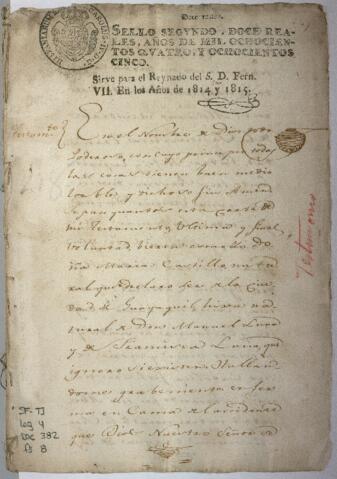 Doce reales.
SELLO SEGVNDO, DOCE REA-
LES, AÑOS DE MIL OCHOCIEN-
TOS QVATRO, Y OCHOCIENTOS
CINCO.
Sirve para el Reynado del S. D. Fern.
VII. En los Años de 1814 y 1815.
Testamto
En el Nombre de Dios todo
Poderoso, con cuyo principio todas
las cosas tienen buen medio
loable, y dichoso fin Amen
Sepan quantos esta Carta de
mi Testamento, Ultima y final
Voluntad, vieren como Yo do
ña Maria Castilla na tu
ral que declaro ser de la Ciu
dad de Guayaquil, hixa na
tural de Don Manuel
y de Luna, que
ignoro si existen. Hallan
dome gravemente enfer
ma en Cama de la
que Dios Nuestro Señor
Testimonio
SF. TJ
leg 4
DOC 382
f. 8